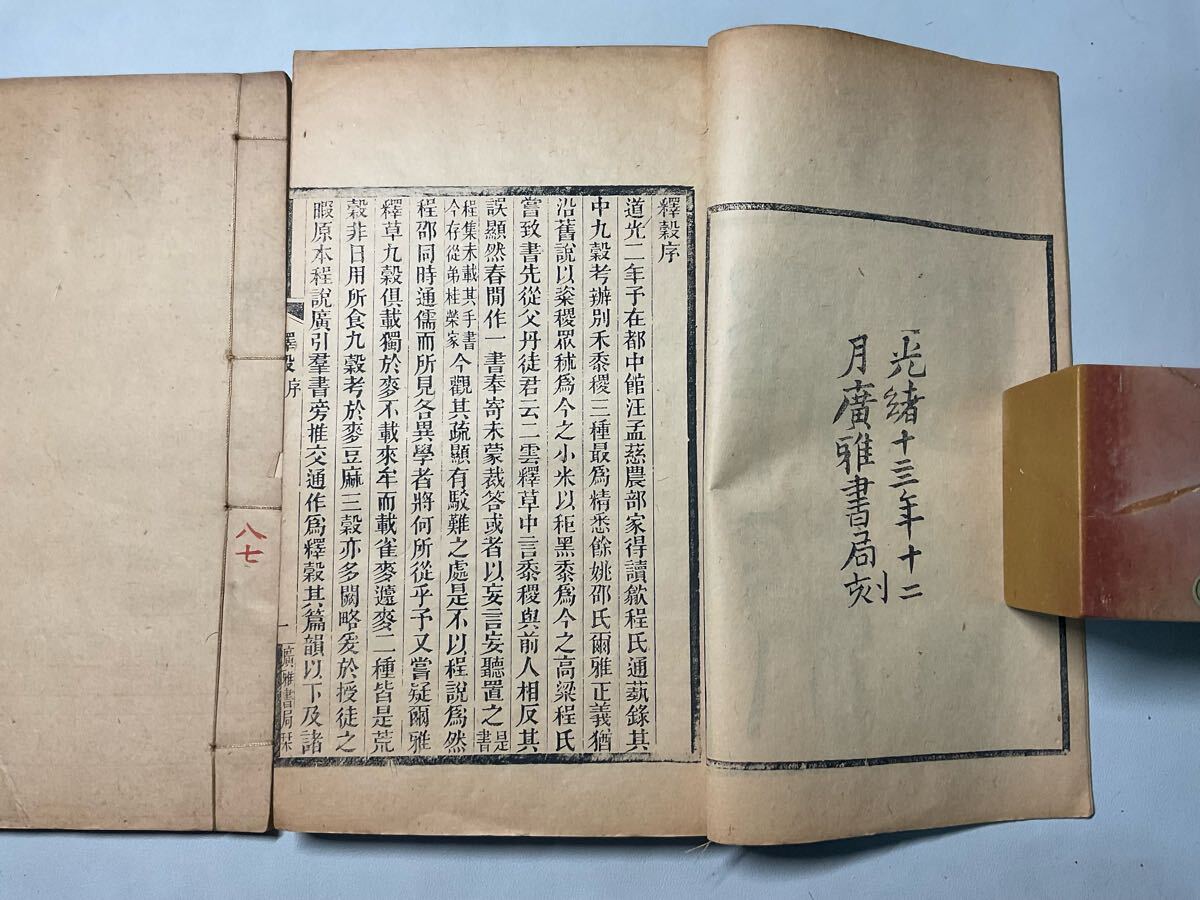 光緒十三年十二
月廣雅書局刻
釋穀序
道光二年予在都中館汪孟慈農部家得讀歙程氏通藝錄其
中九穀考辦別禾黍稷三種最爲精悉餘姚邵氏爾雅正義猶
沿舊說以粢稷眾秫爲今之小米以秬黑黍爲今之高粱程氏
嘗致書先從父丹徒君云二雲釋草中言黍稷與前人相反其
誤顯然春閒作一書奉寄未蒙裁答或者以妄言妄聽置之是書
程集未載其手書
今存從弟桂榮家今觀其疏顯有駁難之處是不以程說爲然
程邵同時通儒而所見各異學者將何所從乎予又嘗疑爾雅
釋草九穀俱載獨於麥不載來牟而載雀麥蘧麥二種皆是荒
穀非日用所食九穀考於麥豆麻三穀亦多闕略爰於授徒之
暇原本程說廣引羣書旁推交通作爲釋穀其篇韻以下及諸
釋穀序
一
廣雅書局栞
八七